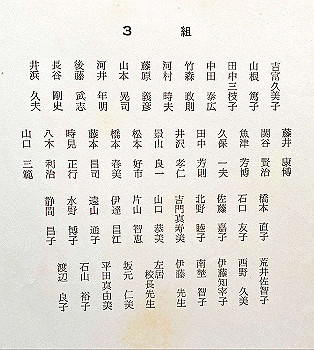 3 組
吉富久美子
山根 篤子
田中三枝子
中田 泰広
竹森 政則
河村 時夫
藤原 義彦
山本 晃司
河井 年明
後藤 武志
長谷 剛史
井浜 久夫
藤井 康博
関谷 賢治
魚津 芳博
久保 一夫
田中 芳則
井沢 孝仁
景山 良一
松本 好市
橋本 春美
藤本 昌司
時見 正行
八木 利治
山口 三範
橋本 直子
石口 友子
佐藤 嘉子
北野 睦子
吉門真寿美
山口 恭美
片山 智恵
伊達 昌江
遠山 道子
水野 博子
静間 昌子
荒井佐智子
西野 久美
伊藤知宰子
南埜 智子
伊藤 先生
左居 校長先生
坂元 仁美
平田真由美
石山 裕子
渡辺 良子